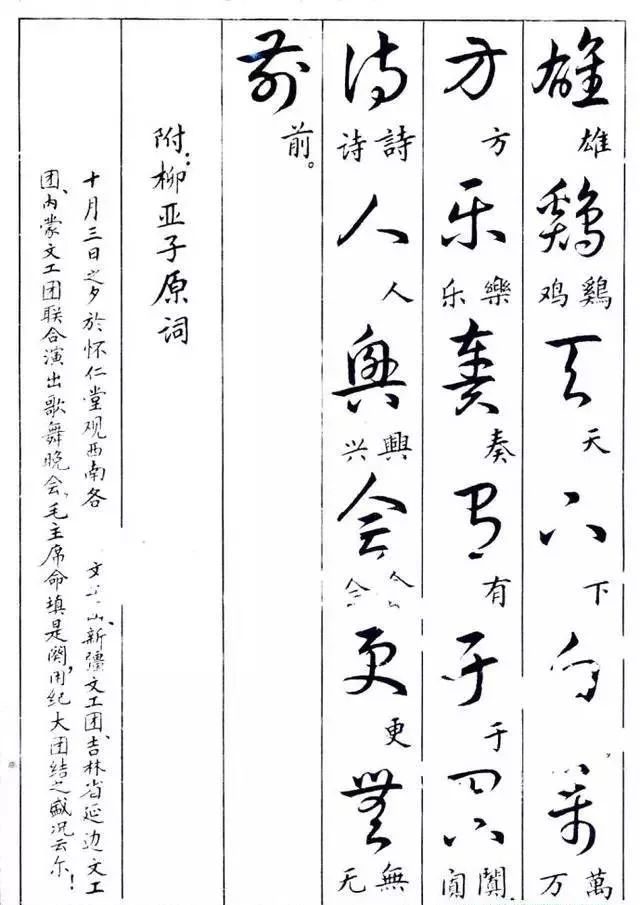 雄鷄天下萬
雄 鸡鷄 天 下 万萬
方乐奏有于阗
方 乐樂 奏 有 于 阗闐
诗人興会更無
诗詩 人 兴興 更 无無
前
前。
附:柳亚子原词
十月三日之夕於怀仁堂观西南各 文 新疆文工团、吉林省延边文工
团、内蒙文工团联合演出歌舞晚会,毛主席命填是阕,用纪大团结之盛况云尔!